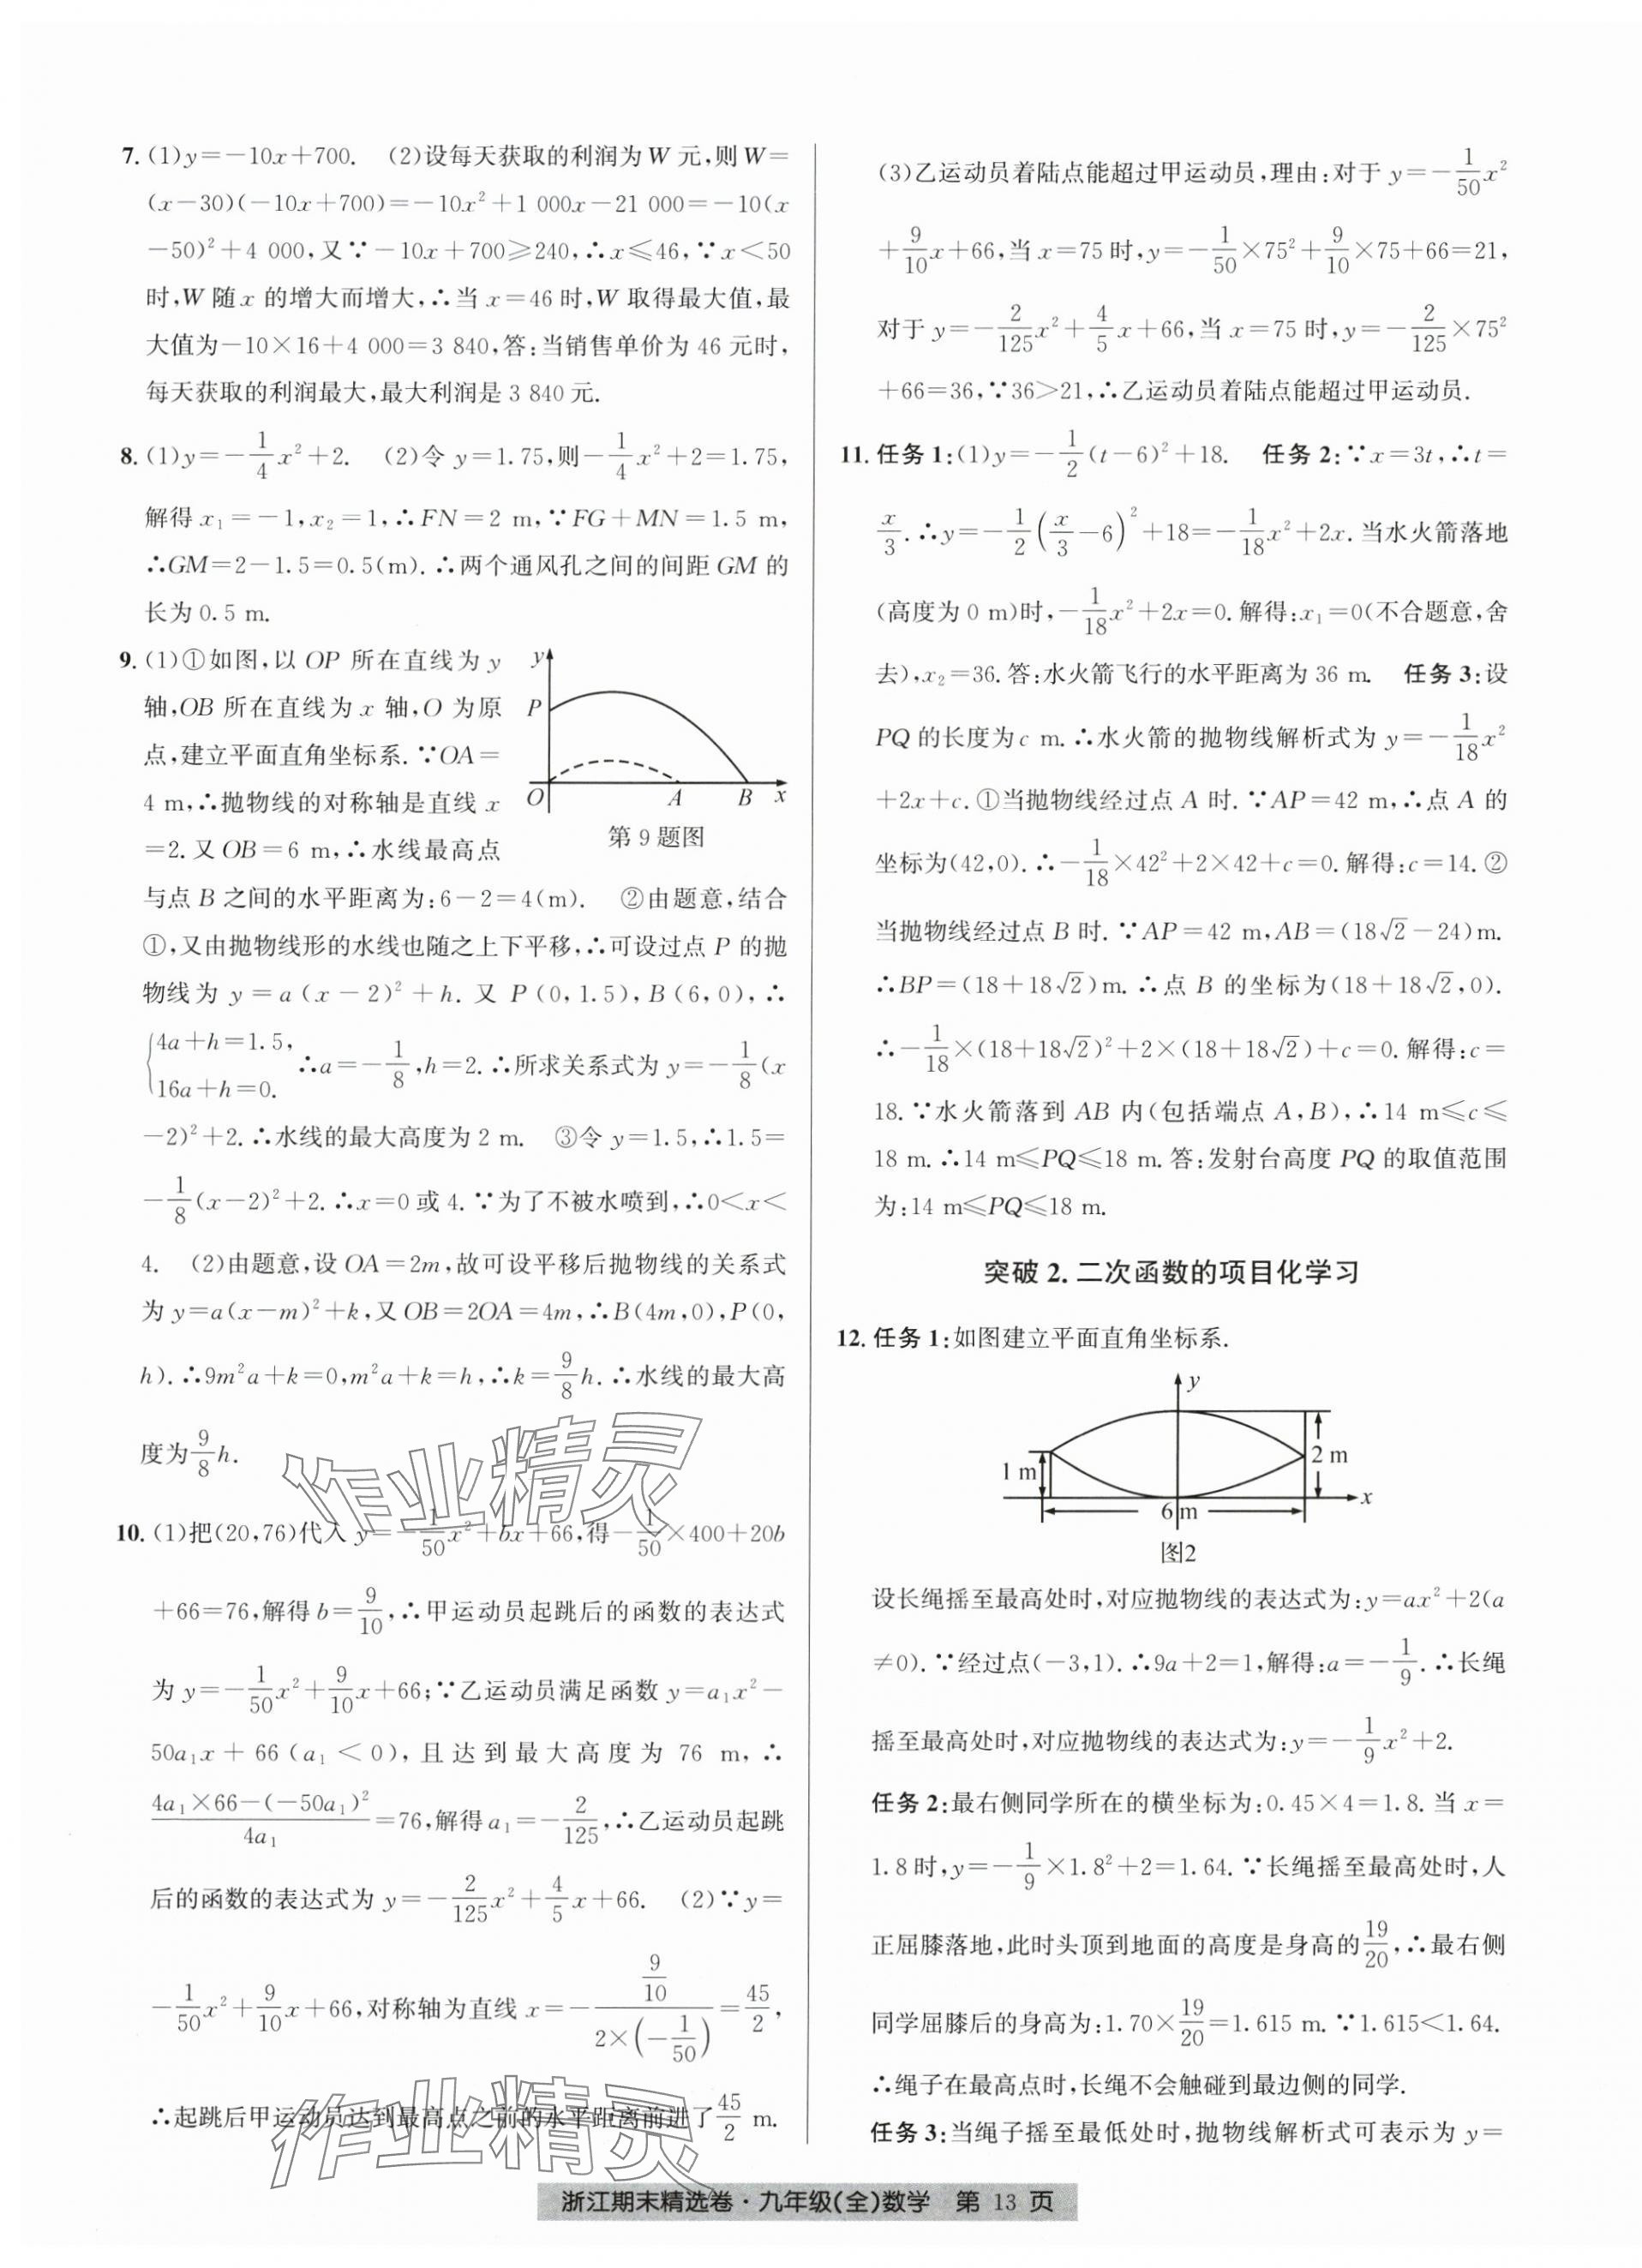 7. (1)y=-10x+700. (2)设每天获取的利润为 W 元,则 W=
(x-30)(-10x+700)=-10x²+1 000x-21 000=-10(x
-50)²+4 000,又∵-10x+700≥240,∴x≤46,∵x<50
时,W 随 x 的增大而增大,∴当 x=46 时,W 取得最大值,最
大值为-10×16+4 000=3 840,答:当销售单价为 46 元时,
每天获取的利润最大,最大利润是 3 840 元.
8. (1)y=-1/4x²+2. (2)令 y=1.75,则-1/4x²+2=1.75,
解得 x₁=-1,x₂=1,∴FN=2 m,∵FG+MN=1.5 m,
∴GM=2-1.5=0.5(m).∴两个通风孔之间的间距 GM 的
长为 0.5 m.
9. (1)①如图,以 OP 所在直线为 y
轴,OB 所在直线为 x 轴,O 为原
点,建立平面直角坐标系.∵OA=
4 m,∴抛物线的对称轴是直线 x
=2.又 OB=6 m,∴水线最高点
y
P
O A B x
第 9 题图
与点 B 之间的水平距离为:6-2=4(m). ②由题意,结合
①,又由抛物线形的水线也随之上下平移,∴可设过点 P 的抛
物线为 y=a(x-2)²+h.又 P(0,1.5),B(6,0),∴
{4a+h=1.5, 16a+h=0. ∴a=-1/8,h=2.∴所求关系式为 y=-1/8(x
-2)²+2.∴水线的最大高度为 2 m. ③令 y=1.5,∴1.5=
-1/8(x-2)²+2.∴x=0 或 4.∵为了不被水喷到,∴0<x<
4. (2)由题意,设 OA=2m,故可设平移后抛物线的关系式
为 y=a(x-m)²+k,又 OB=2OA=4m,∴B(4m,0),P(0,
h).∴9m²a+k=0,m²a+k=h,∴k=9/8h.∴水线的最大高
度为9/8h.
10. (1)把(20,76)代入 y=-1/50x²+bx+66,得-1/50×400+20b
+66=76,解得 b=9/10,∴甲运动员起跳后的函数的表达式
为 y=-1/50x²+9/10x+66;∵乙运动员满足函数 y=a₁x²-
50a₁x+66(a₁<0),且达到最大高度为 76 m,∴
(4a₁×66-(-50a₁)²)/4a₁=76,解得 a₁=-2/125,∴乙运动员起跳
后的函数的表达式为 y=-2/125x²+4/5x+66. (2)∵y=
-1/50x²+9/10x+66,对称轴为直线 x=-(9/10)/(2×(-1/50))=45/2,
∴起跳后甲运动员达到最高点之前的水平距离前进了45/2 m.
(3)乙运动员着陆点能超过甲运动员,理由:对于 y=-1/50x²
+9/10x+66,当 x=75 时,y=-1/50×75²+9/10×75+66=21,
对于 y=-2/125x²+4/5x+66,当 x=75 时,y=-2/125×75²
+66=36,∵36>21,∴乙运动员着陆点能超过甲运动员.
11. 任务 1:(1)y=-1/2(t-6)²+18. 任务 2:∵x=3t,∴t=
x/3.∴y=-1/2(x/3-6)²+18=-1/18x²+2x.当水火箭落地
(高度为 0 m)时,-1/18x²+2x=0.解得:x₁=0(不合题意,舍
去),x₂=36.答:水火箭飞行的水平距离为 36 m. 任务 3:设
PQ 的长度为 c m.∴水火箭的抛物线解析式为 y=-1/18x²
+2x+c.①当抛物线经过点 A 时.∵AP=42 m,∴点 A 的
坐标为(42,0).∴-1/18×42²+2×42+c=0.解得:c=14.②
当抛物线经过点 B 时.∵AP=42 m,AB=(18√2-24)m.
∴BP=(18+18√2)m.∴点 B 的坐标为(18+18√2,0).
∴-1/18×(18+18√2)²+2×(18+18√2)+c=0.解得:c=
18.∵水火箭落到 AB 内(包括端点 A,B),∴14 m≤c≤
18 m.∴14 m≤PQ≤18 m.答:发射台高度 PQ 的取值范围
为:14 m≤PQ≤18 m.
突破 2.二次函数的项目化学习
12. 任务 1:如图建立平面直角坐标系.
y
1 m
2 m
6 m
x
图2
设长绳摇至最高处时,对应抛物线的表达式为:y=ax²+2(a
≠0).∵经过点(-3,1).∴9a+2=1,解得:a=-1/9.∴长绳
摇至最高处时,对应抛物线的表达式为:y=-1/9x²+2.
任务 2:最右侧同学所在的横坐标为:0.45×4=1.8.当 x=
1.8 时,y=-1/9×1.8²+2=1.64.∵长绳摇至最高处时,人
正屈膝落地,此时头顶到地面的高度是身高的19/20,∴最右侧
同学屈膝后的身高为:1.70×19/20=1.615 m.∵1.615<1.64.
∴绳子在最高点时,长绳不会触碰到最边侧的同学.
任务 3:当绳子摇至最低处时,抛物线解析式可表示为 y=
作业精灵
作业精灵
浙江期末精选卷·九年级(全)数学 第 13 页